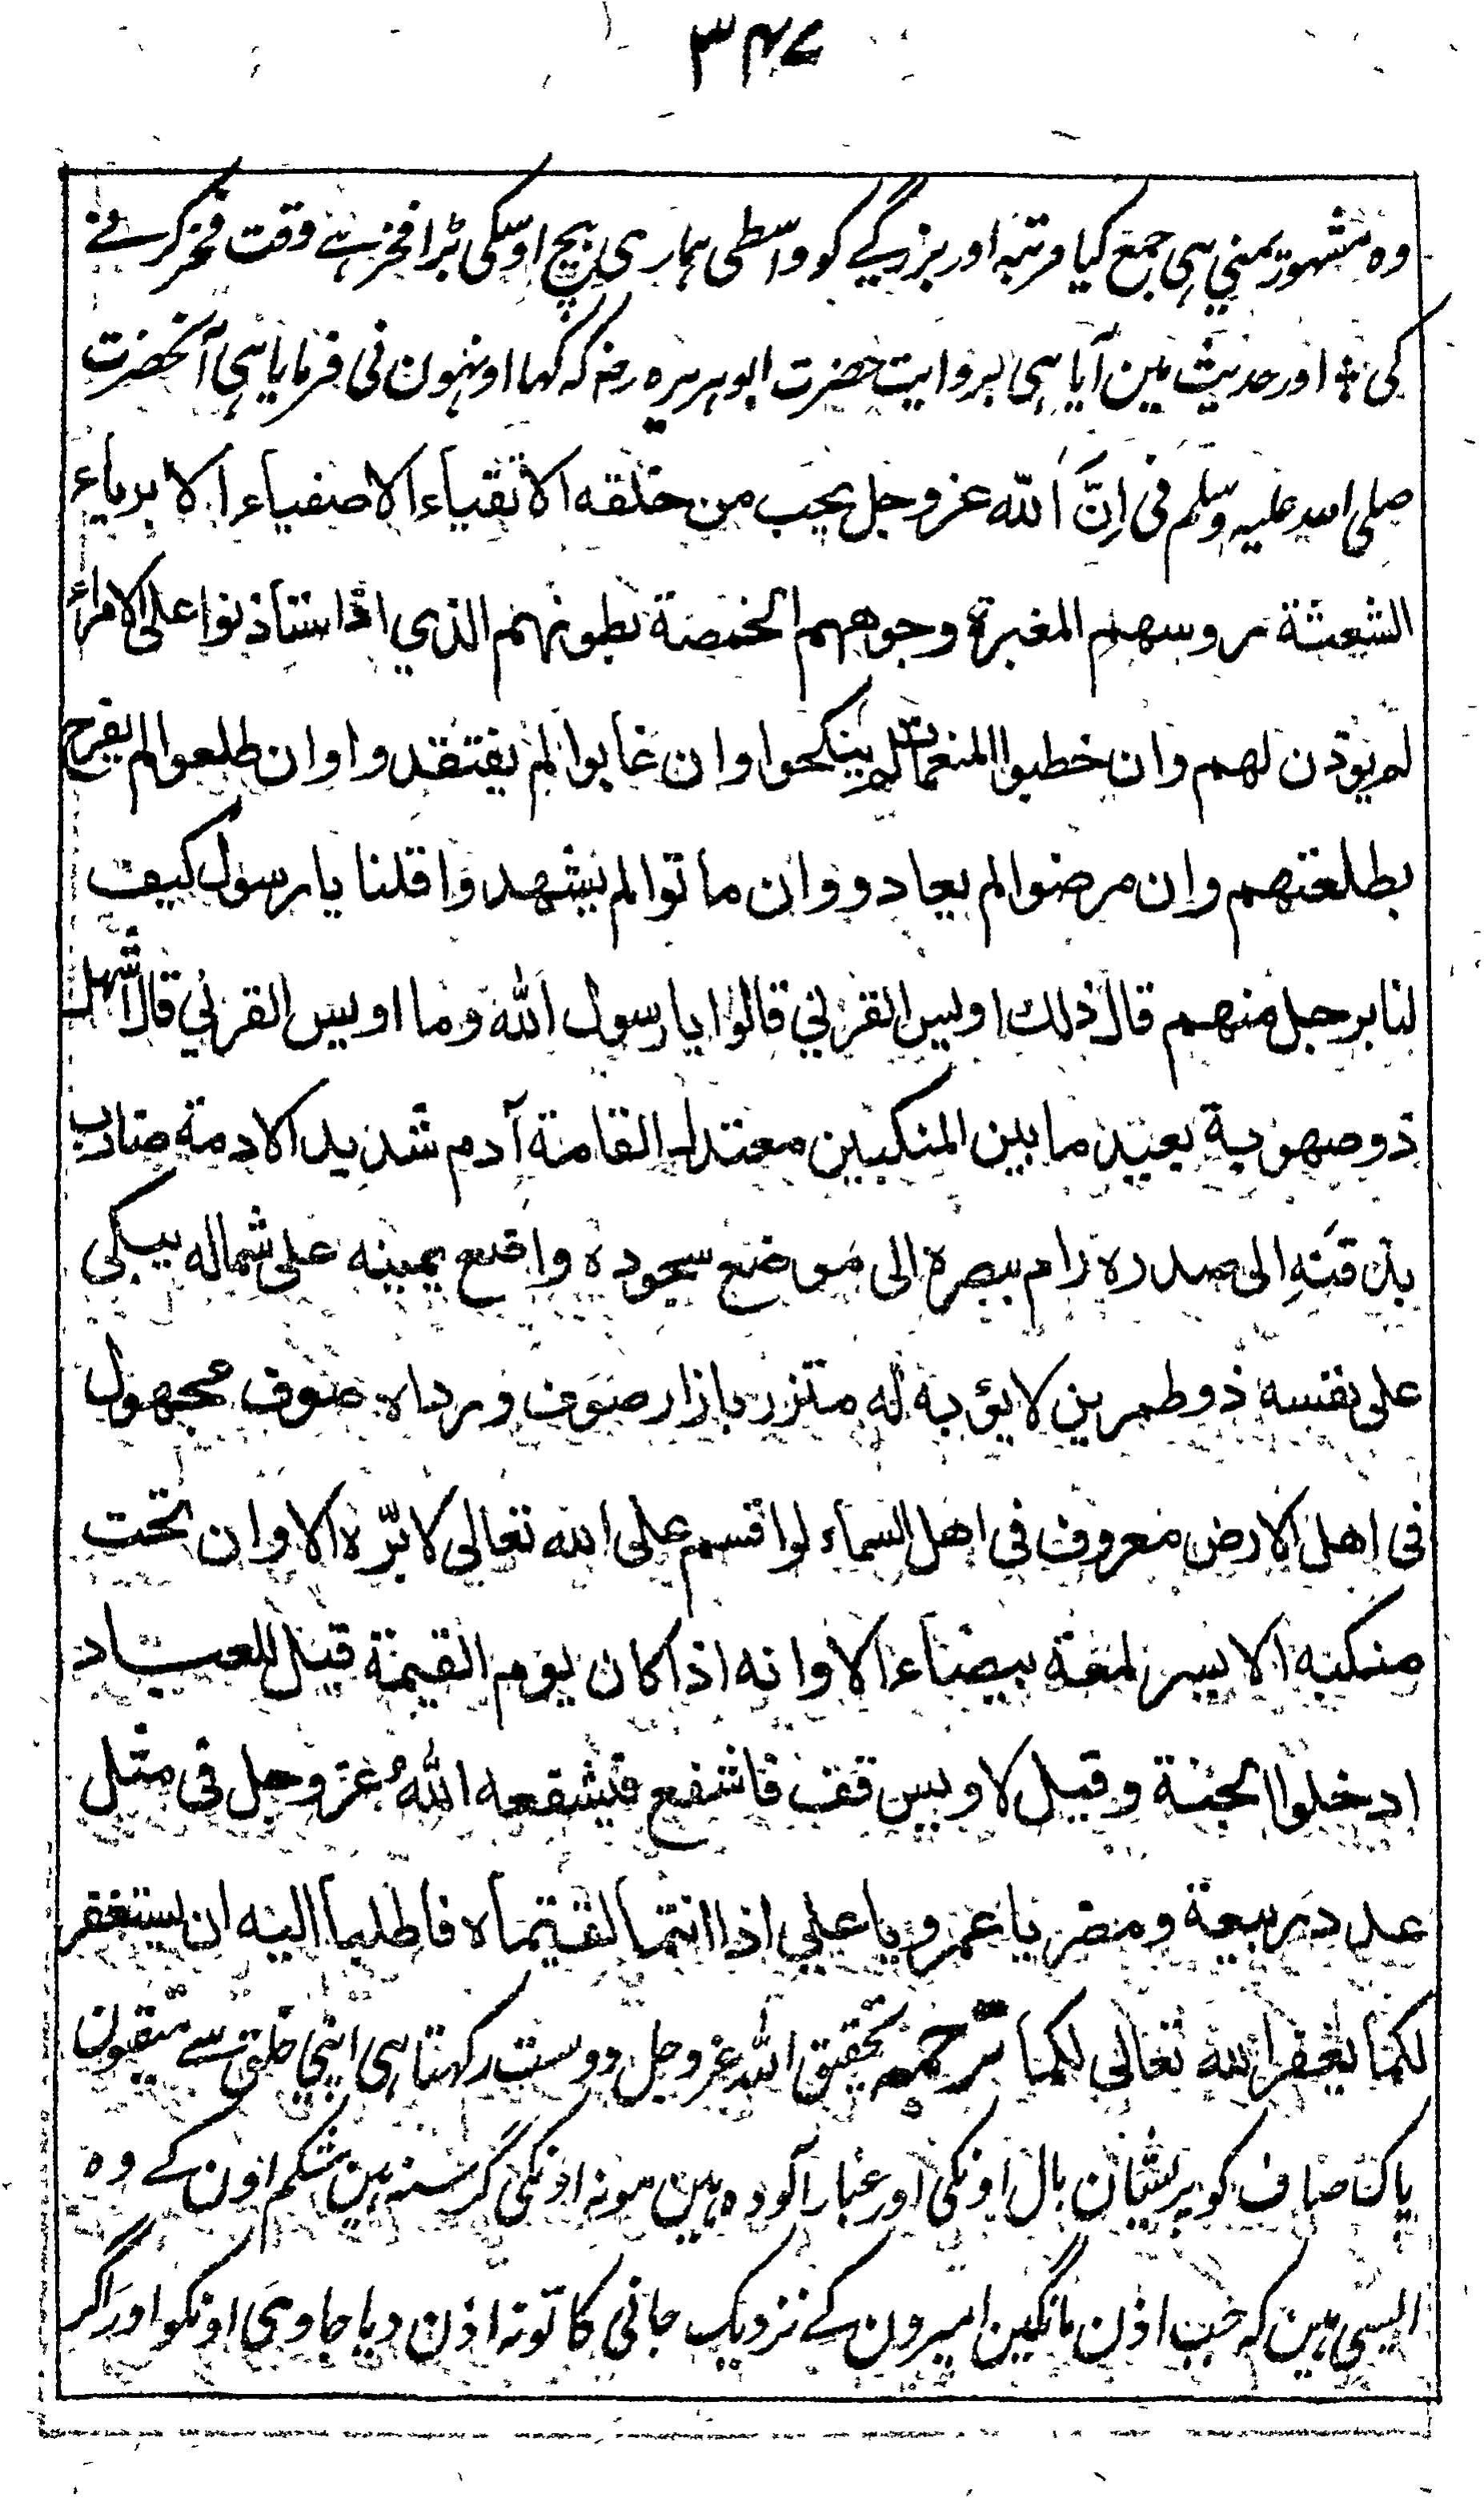 ۳۴۷
وہ مشہور یمنی ہی جمع کیا مرتبہ اور بزرگے کو واسطی ہماری بیچ اوسکی بڑا فخر ہے وقت فخر کرنے
کی ؞ اور حدیث مین آیا ہی بروایت حضرت ابوہریرہ رضہ کہ کہا اونہون نی فرمایا ہی آنحضرت
صلی اللہ علیہ وسلم فی اِنَّ اَللّٰه عز وجل یحب من خلقه الاتقیاء الاصفیاء الابریاء
الشعثة روسهم المغبرة وجوههم الخمصة بطونهم الذي اذا ستاذنوا علی الامراء
لم یوذن لهم وان خطبوا المنعمات لم ینکحوا وان غابوا لم یفتقدوا وان طلعوا لم یفرح
بطلعتهم وان مرضوا لم یعادوو وان ماتوا لم یشهدوا قلنا یا رسول کیف
لنا برجل منهم قال ذلك اویس القرني قالوا یا رسول الله وما اویس القرني قال اشهل
ذو صهوبة بعید ما بین المنکبین معتدل القامة آدم شدید الادمة ضارب
بذقنهِ الی صدره رام ببصرة الی موضع سجوده واضع یمینه علی شماله یبکی
علی نفسه ذو طمرین لا یؤبه له متزر بازار صوف ورداه صوف مجهول
فی اهل الارض معروف فی اهل السماء لو اقسم علی الله تعالی لابرّه الا وان تحت
منکبه الایسر لمغة بیضاء الا وانه اذا کان یوم القیمة قیل للعباد
ادخلوا الجنة وقیل لاویس قف فاشفع فیشفعه اللهُ عز وجل فی مثل
عدد ربیعة ومضر یا عمر ویا علي اذا انتما لقیتماه فاطلبا الیه ان یستغفر
لکما یغفر الله تعالی لکما ترجمہ تحقیق اللہ عز وجل دوست رکہتا ہی اپنی خلق سے متقیون
پاک صاف کو پریشان بال اونکی اور غبار آلودہ ہین مونہ اونکی گرسنہ ہین شکم اون کے وہ
ایسی ہین کہ جب اذن مانگین امیرون کے نزدیک جانی کا تو نہ اذن دیا جاوی اونکو اور اگر